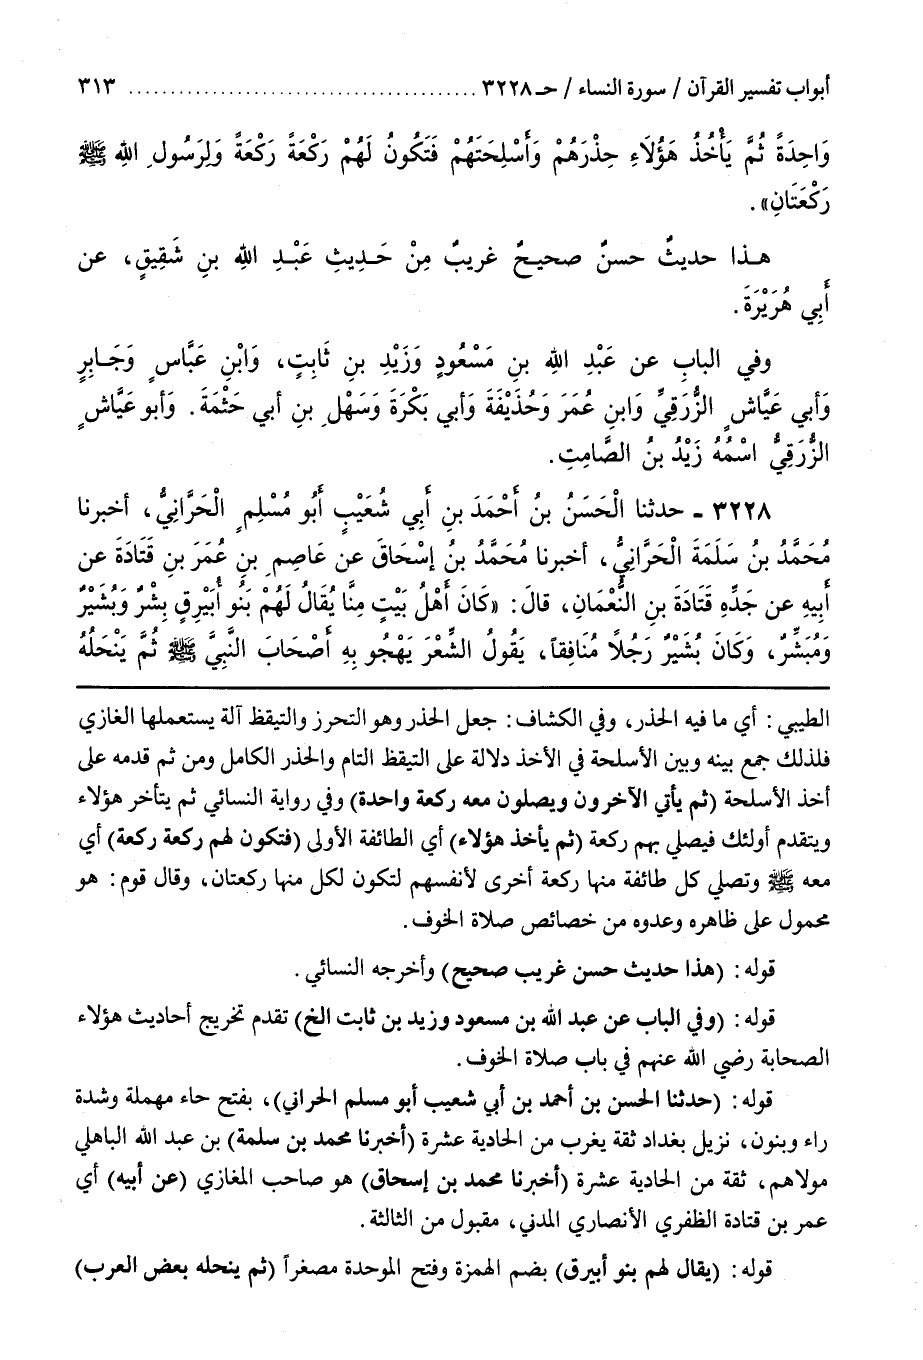 أبواب تفسير القرآن / سورة النساء / حـ ٣٢٢٨ ........................................ ٣١٣
وَاحِدَةً ثُمَّ يَأْخُذُ هَؤُلَاءِ حِذْرَهُمْ وَأَسْلِحَتَهُمْ فَتَكُونُ لَهُمْ رَكْعَةً رَكْعَةً وَلِرَسُولِ اللهِ ﷺ
رَكْعَتَانِ».
هـذا حديثٌ حسنٌ صحيـحٌ غريبٌ مِنْ حَـدِيثِ عَبْـدِ اللهِ بنِ شَقِيقٍ، عن
أَبِي هُرَيْرَةَ.
وفي البابِ عن عَبْدِ اللهِ بنِ مَسْعُودٍ وَزَيْدِ بنِ ثَابِتٍ، وَابْنِ عَبَّاسٍ وَجَـابِرٍ
وَأبي عَيَّاشٍ الزُّرَقِيِّ وَابنِ عُمَرَ وَحُذَيْفَةَ وَأبي بَكْرَةَ وَسَهْلِ بنِ أبي حَثْمَةَ. وَأبو عَيَّاشٍ
الزُّرَقِيُّ اسْمُهُ زَيْدُ بنُ الصَّامِتِ.
٣٢٢٨ ـ حدثنا الْحَسَنُ بنُ أَحْمَدَ بنِ أَبِي شُعَيْبٍ أَبُو مُسْلِمٍ الْحَرَّانِيُّ، أخبرنا
مُحَمَّدُ بنُ سَلَمَةَ الْحَرَّانِيُّ، أخبرنا مُحَمَّدُ بنُ إسْحَاقَ عن عَاصِمِ بنِ عُمَرَ بنِ قَتَادَةَ عن
أبِيهِ عن جَدِّهِ قَتَادَةَ بنِ النُّعْمَانِ، قالَ: «كَانَ أَهْلُ بَيْتٍ مِنَّا يُقَالُ لَهُمْ بَنُو أُبَيْرِقٍ بِشْرٌ وَبُشَيْرٌ
وَمُبَشِّرٌ، وَكَانَ بُشَيْرٌ رَجُلًا مُنَافِقاً، يَقُولُ الشِّعْرَ يَهْجُو بِهِ أَصْحَابَ النَّبِيِّ ﷺ ثُمَّ يَنْحَلُهُ
الطيبي: أي ما فيه الحذر، وفي الكشاف: جعل الحذر وهو التحرز والتيقظ آلة يستعملها الغازي
فلذلك جمع بينه وبين الأسلحة في الأخذ دلالة على التيقظ التام والحذر الكامل ومن ثم قدمه على
أخذ الأسلحة (ثم يأتي الآخرون ويصلون معه ركعة واحدة) وفي رواية النسائي ثم يتأخر هؤلاء
ويتقدم أولئك فيصلي بهم ركعة (ثم يأخذ هؤلاء) أي الطائفة الأولى (فتكون لهم ركعة ركعة) أي
معه ﷺ وتصلي كل طائفة منها ركعة أخرى لأنفسهم لتكون لكل منها ركعتان، وقال قوم: هو
محمول على ظاهره وعدوه من خصائص صلاة الخوف.
قوله: (هذا حديث حسن غريب صحيح) وأخرجه النسائي.
قوله: (وفي الباب عن عبد الله بن مسعود وزيد بن ثابت الخ) تقدم تخريج أحاديث هؤلاء
الصحابة رضي الله عنهم في باب صلاة الخوف.
قوله: (حدثنا الحسن بن أحمد بن أبي شعيب أبو مسلم الحراني)، بفتح حاء مهملة وشدة
راء وبنون، نزيل بغداد ثقة يغرب من الحادية عشرة (أخبرنا محمد بن سلمة) بن عبد الله الباهلي
مولاهم، ثقة من الحادية عشرة (أخبرنا محمد بن إسحاق) هو صاحب المغازي (عن أبيه) أي
عمر بن قتادة الظفري الأنصاري المدني، مقبول من الثالثة.
قوله: (يقال لهم بنو أبيرق) بضم الهمزة وفتح الموحدة مصغراً (ثم ينحله بعض العرب)